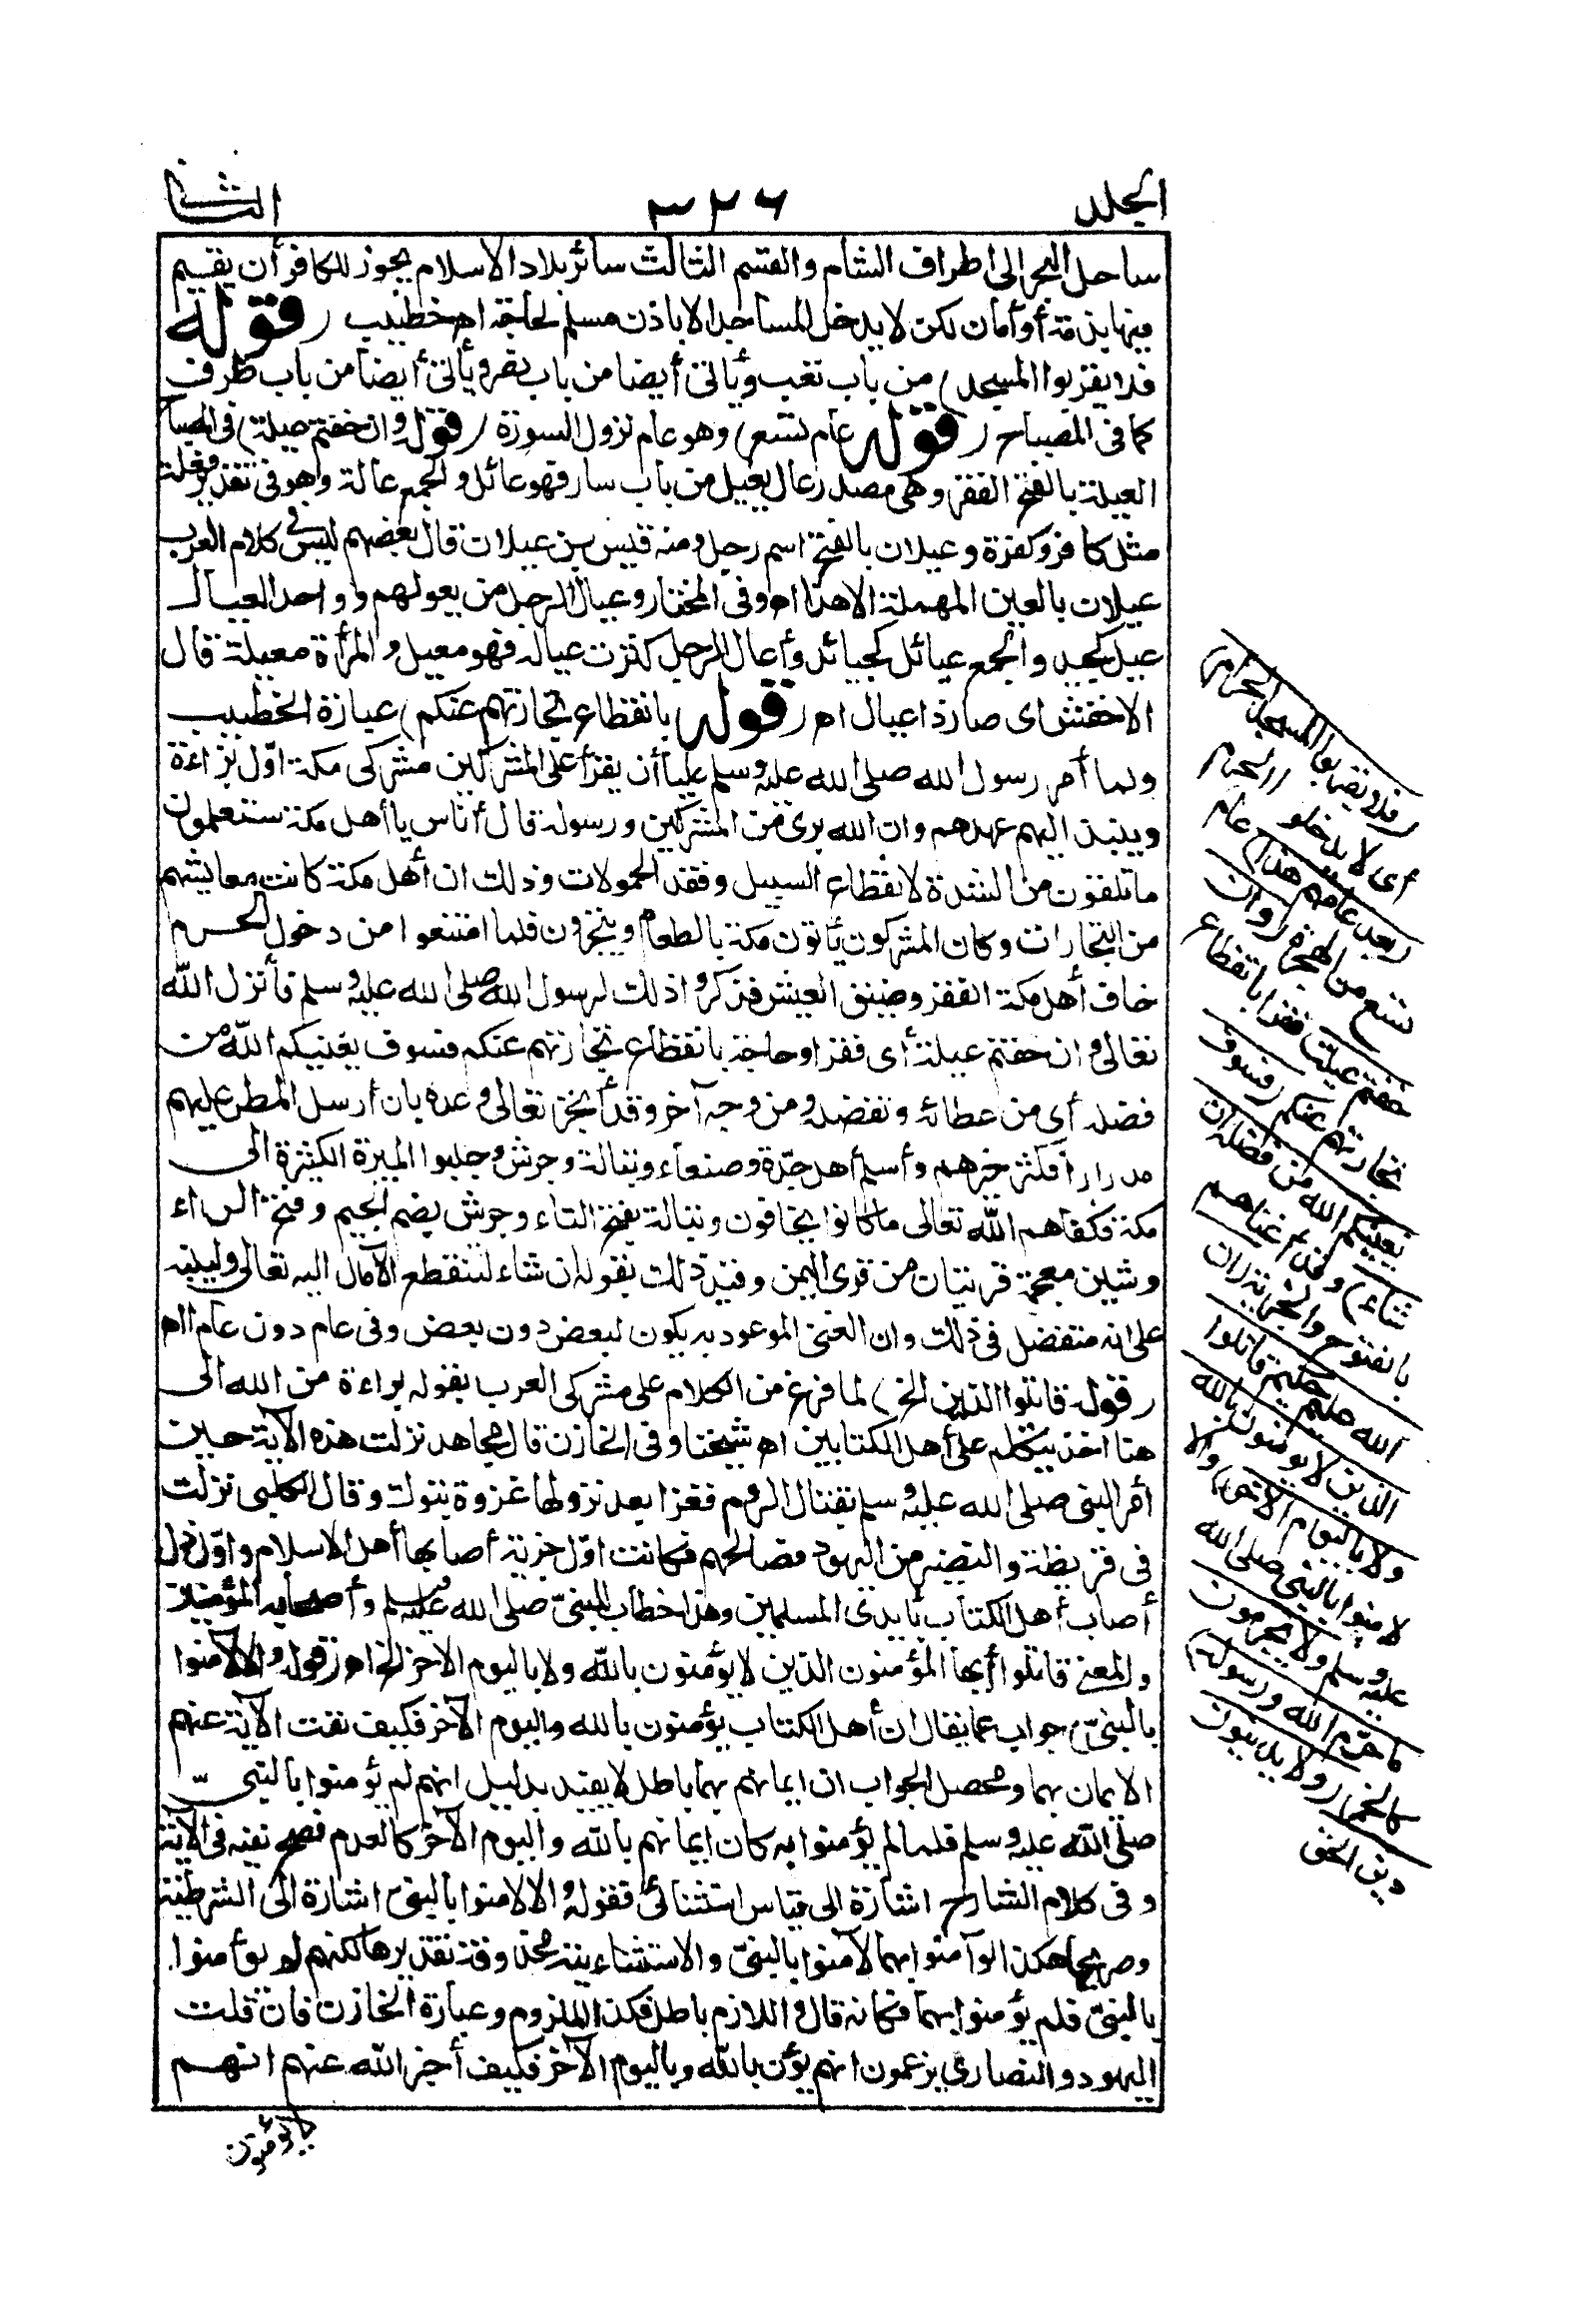 الجلد
٣٢٦
الثانى
ساحل البحر الى اطراف الشام والقسم الثالث سائر بلاد الاسلام يجوز للكافر أن يقيم
فيها بذمة أو أمان لكن لا يدخل المساجد الا باذن مسلم لحاجة اه خطيب (قوله
فلا يقربوا المسجد) من باب تعب ويأتى أيضا من باب نصر ويأتى أيضا من باب ظرف
كما فى المصباح (قوله عام تسع) وهو عام نزول السورة (قوله وان خفتم عيلة) فى المصبا
العيلة بالفتح الفقر وهى مصدر عال يعيل من باب سار فهو عائل والجمع عالة وهو فى تقدير فعلة
مثل كافر وكفرة وعيلان بالفتح اسم رجل ومنه قيس بن عيلان قال بعضهم ليس فى كلام العرب
عيلان بالعين المهملة الا هذا اه وفى المختار وعيال الرجل من يعولهم وواحد العيال
عيل كجيد والجمع عيائل كجيائد وأعال الرجل كثرت عياله فهو معيل والمرأة معيلة قال
الاخفش اى صار ذا عيال اه (قوله بانقطاع تجارتهم عنكم) عبارة الخطيب
ولما أمر رسول الله صلى الله عليه وسلم عليا أن يقرأ على المشركين مشركى مكة اوّل براءة
وينبذ اليهم عهدهم وان الله برئ من المشركين ورسوله قال أناس يا أهل مكة ستعلمون
ما تلقون من الشدة لانقطاع السبيل وفقد الحمولات وذلك ان أهل مكة كانت معايشهم
من التجارات وكان المشركون يأتون مكة بالطعام ويتجرون فلما امتنعوا من دخول الحرم
خاف أهل مكة الفقر وضيق العيش فذكروا ذلك لرسول الله صلى الله عليه وسلم فأنزل الله
تعالى وان خفتم عيلة أى فقرا وحاجة بانقطاع تجارتهم عنكم فسوف يغنيكم الله من
فضله أى من عطائه وتفضله ومن وجه آخر وقد أنجز تعالى وعده بان أرسل المطر عليهم
مدرارا فكثر خيرهم وأسلم أهل جدّة وصنعاء وتبالة وجرش وجلبوا الميرة الكثيرة الى
مكة فكفاهم الله تعالى ما كانوا يخافون وتبالة بفتح التاء وجرش بضم الجيم وفتح الراء
وشين معجمة قريتان من قرى اليمن وقيد ذلك بقوله ان شاء لتنقطع الآمال اليه تعالى ولينبه
على انه متفضل فى ذلك وان الغنى الموعود به يكون لبعض دون بعض وفى عام دون عام اه
(قوله قاتلوا الذين الخ) لما فرغ من الكلام على مشركى العرب بقوله براءة من الله الى
هنا اخذ يتكلم على أهل الكتابين اه شيخنا وفى الخازن قال مجاهد نزلت هذه الآية حين
أمر النبى صلى الله عليه وسلم بقتال الروم فغزا بعد نزولها غزوة تبوك وقال الكلبى نزلت
فى قريظة والنضير من اليهود فصالحهم فكانت اوّل جزية أصابها أهل الاسلام واوّل ذل
أصاب أهل الكتاب بأيدى المسلمين وهذا خطاب للنبىّ صلى الله عليه وسلم وأصحابه المؤمنين
والمعنى قاتلوا أيها المؤمنون الذين لا يؤمنون بالله ولا باليوم الآخر الخ اه (قوله والا لآمنوا
بالنبىّ) جواب عما يقال ان أهل الكتاب يؤمنون بالله واليوم الآخر فكيف نفت الآية عنهم
الايمان بهما ومحصل الجواب ان ايمانهم بهما باطل لا يفيد بدليل انهم لم يؤمنوا بالنبىّ
صلى الله عليه وسلم فلما لم يؤمنوا به كان ايمانهم بالله واليوم الآخر كالعدم فصح نفيه فى الآية
وفى كلام الشارح اشارة الى قياس استثنائى فقوله والا لآمنوا بالنبىّ اشارة الى الشرطية
وصريحها هكذا لو آمنوا بهما لآمنوا بالنبىّ والاستثنائية محذوفة تقديرها لكنهم لم يؤمنوا
بالنبىّ فلم يؤمنوا بهما فكانه قال واللازم باطل فكذا الملزوم وعبارة الخازن فان قلت
اليهود والنصارى يزعمون انهم يؤمن بالله وباليوم الآخر فكيف أخبر الله عنهم انهم
لا يؤمنون
(فلا يقربوا المسجد الحرام)
أى لا يدخلوا الحرم
(بعد عامهم هذا) عام
تسع من الهجرة (وان
خفتم عيلة) فقرا بانقطاع
تجارتهم عنكم (فسوف
يغنيكم الله من فضله ان
شاء) وقد أغناهم
بالفتوح والجزية (ان
الله عليم حكيم قاتلوا
الذين لا يؤمنون بالله
ولا باليوم الآخر) والا
لآمنوا بالنبى صلى الله
عليه وسلم (ولا يحرمون
ما حرّم الله ورسوله)
كالخمر (ولا يدينون
دين الحق